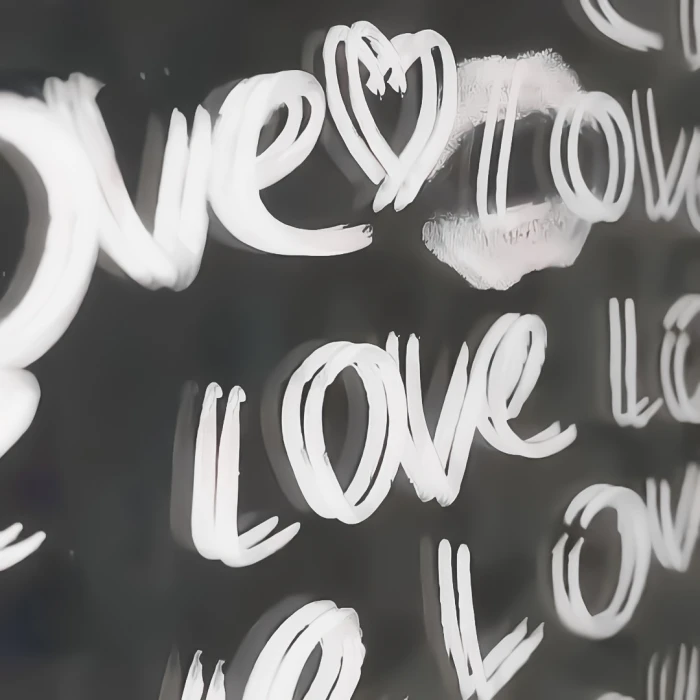 ove♡ Love
Love Lo
L ov